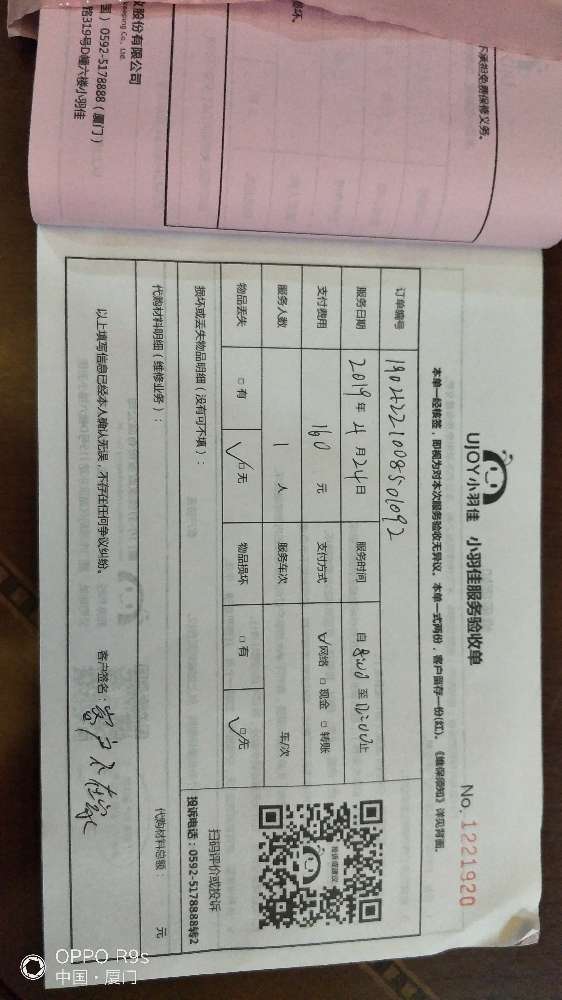 不承担免费保修义务。
损坏。
股份有限公司
keeping Co., Ltd.
国）0592-5178888（厦门）
路319号D幢六楼小羽佳
UJOY小羽佳 小羽佳服务验收单
No. 1221920
本单一经核签，即视为对本次服务验收无异议。本单一式两份，客户留存一份(红)。《维保须知》详见背面。
订单编号
服务日期 2019年 4月 24日 服务时间 自 8:00 至 12:00 止
支付费用 160 元 支付方式 √网络 □ 现金 □ 转账
服务人数 1 人 服务车次 车/次
物品丢失 □ 有 ☑无 物品损坏 □ 有 ☑无
损坏或丢失物品明细（没有可不填）：
代购材料明细（维修业务）： 代购材料总额： 元
以上填写信息已经本人确认无误，不存在任何争议纠纷。 客户签名：客户不在家
接诉或建议
扫码评价或投诉
投诉电话：0592-5178888转2
OPPO R9s
中国·厦门